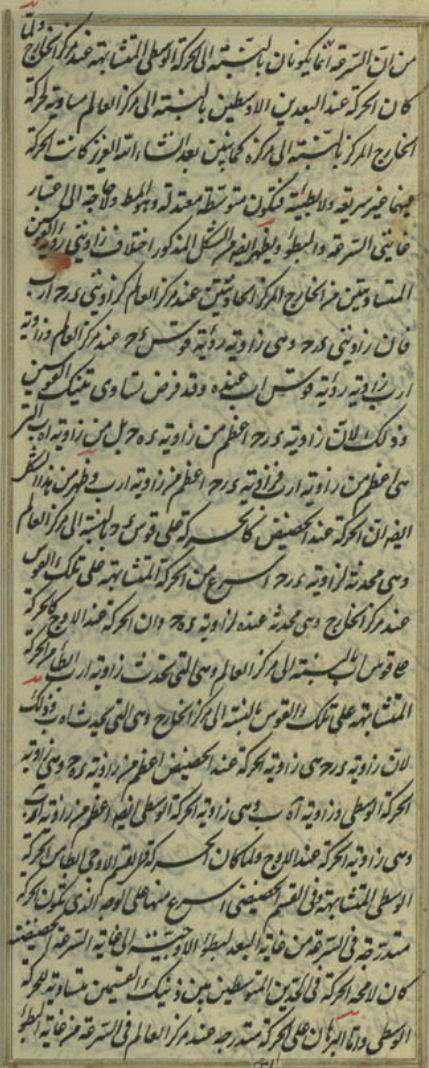 ولما
من ان السرعة انما يكونان بالنسبة الى الحركة الوسطى المتشابهة عند مركز الخارج
كان الحركة عند البعدين الاوسطين بالنسبة الى مركز العالم مساوية لحركة
الخارج المركز بالنسبة الى مركزه كما يتبين بعد انشاء الله العزيز كانت الحركة
فيهما غير سريعة ولا بطيئة فتكون متوسطة معتدلة وهو المط ولا حاجة الى اعتبار
غايتي السرعة والبطؤ ويظهر ايضا من الشكل المذكور اختلاف زاويتي رؤية القوسين
المتساويتين من الخارج المركز الحادثتين عند مركز العالم كزاويتي ءرح ارب
فان زاويتي ءرح وهى زاوية رؤية قوس ءح عند مركز العالم وزاوية
ارب زاوية رؤية قوس اب عنده وقد فرض تساوى تينك القوسين
وذلك لان زاوية ءرح اعظم من زاوية ءهح بل من زاوية اهب التى
هى اعظم من زاوية ارب فزاوية ءرح اعظم من زاوية ارب وظهر من هذا الشكل
ايضا ان الحركة عند الحضيض كالحركة على قوس ءح بالنسبة الى مركز العالم
وهى محدثة لزاوية ءرح اسرع من الحركة المتشابهة على تلك القوس
عند مركز الخارج وهى محدثة عنده لزاوية ءهح وان الحركة عند الاوج كالحركة
على قوس اب بالنسبة الى مركز العالم وهى التى تحدث زاوية ارب ابطأ من الحركة
المتشابهة على تلك القوس بالنسبة الى مركز الخارج وهى التى يحدث اهب وذلك
لان زاوية ءرح هى زاوية الحركة عند الحضيض اعظم من زاوية ءهح وهى زاوية
الحركة الوسطى وزاوية اهب وهى زاوية الحركة الوسطى ايضا اعظم من زاوية ارب
وهى زاوية الحركة عند الاوج ولما كان الحركة فى القسم الاوجى ابطأ من الحركة
الوسطى المتشابهة وفى القسم الحضيضى اسرع منها على الوجه الذى تكون الحركة
متدرجة فى السرعة من غاية البعد لبطؤ الاوجيته الى غاية السرعة الحضيضية
كان لا محه الحركة فى الحدين المتوسطين بين ذينك القسمين متساوية للحركة
الوسطى واما البرهان على الحركة متدرجة عند مركز العالم فى السرعة من غاية البطؤ